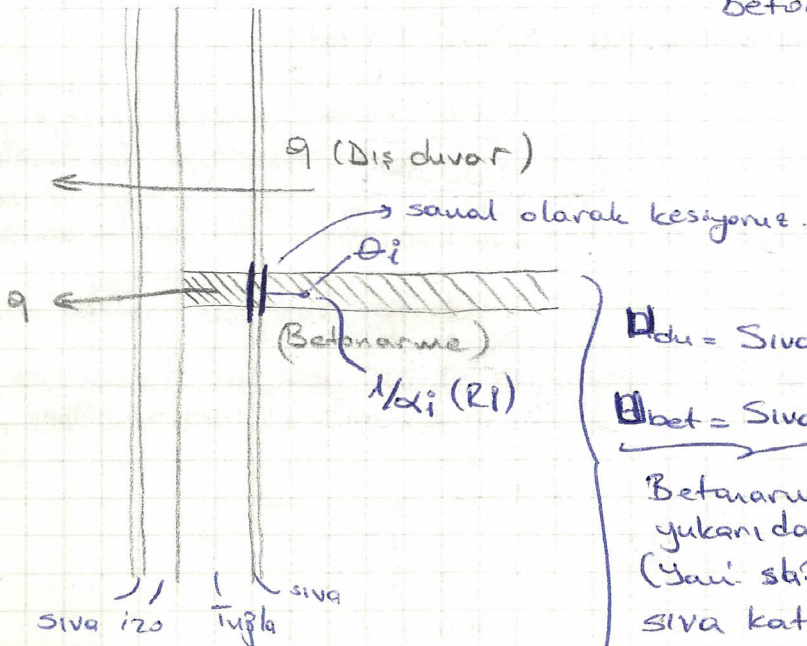 beto
q (Dış duvar)
sanal olarak kesiyoruz.
θi
q
(Betonarme)
1/αi (Ri)
du = Sıva
bet = Sıva
Betonarm
yukarıda
(Yani
sıva kat
sıva izo Tuğla sıva